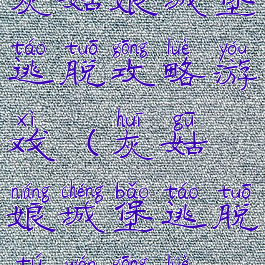 灰姑娘城堡
táo tuō gōng lüè yóu
逃脱攻略游
xì huī gū
戏(灰姑
niáng chéng bǎo táo tuō
娘城堡逃脱